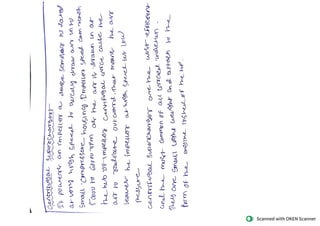 centrifugal Superchargers
powers an impeller a
at very high speed to quickly draw air into
small compressor housing. Impeller speed can reach
to rpm. as the air is drawn in at
the hub of impeller centrifugal force cause the
air to radiate outward. that means the air
leaves the impeller at high speed but low
pressure.
centrifugal superchargers are the most efficient
and the most common of all
They are small light weight and attach to the
front of the engine instead of the top.
Scanned with OKEN Scanner